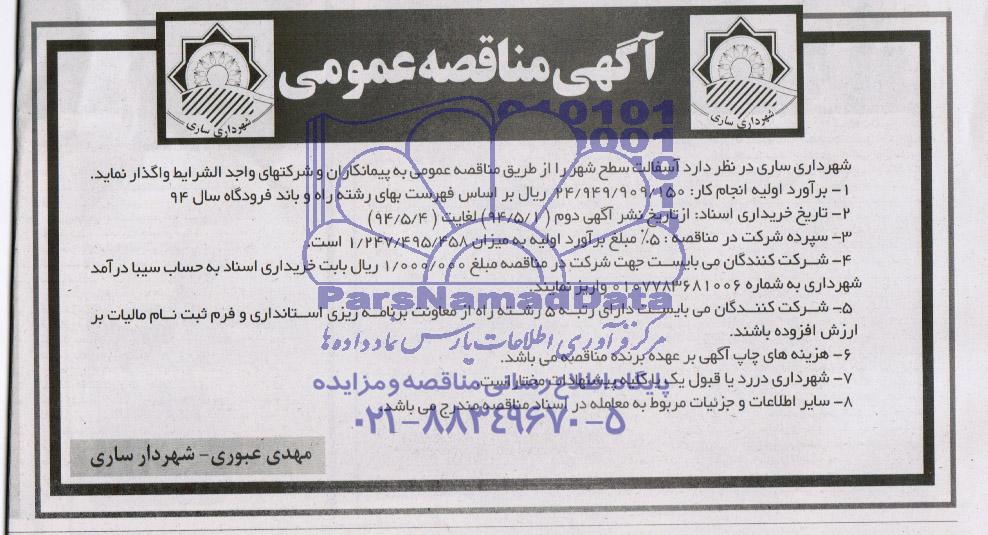 آگهی مناقصه عمومی
شهرداری ساری
شهرداری ساری
شهرداری ساری در نظر دارد آسفالت سطح شهر را از طریق مناقصه عمومی به پیمانکاران و شرکتهای واجد الشرایط واگذار نماید.
۱- برآورد اولیه انجام کار: ۲۴/۹۴۹/۹۰۹/۱۵۰ ریال بر اساس فهرست بهای رشته راه و باند فرودگاه سال ۹۴
۲- تاریخ خریداری اسناد: از تاریخ نشر آگهی دوم (۹۴/۵/۱) لغایت (۹۴/۵/۴)
۳- سپرده شرکت در مناقصه: ۵٪ مبلغ برآورد اولیه به میزان ۱/۲۴۷/۴۹۵/۴۵۸ است.
۴- شرکت کنندگان می بایست جهت شرکت در مناقصه مبلغ ۱/۰۰۰/۰۰۰ ریال بابت خریداری اسناد به حساب سیبا درآمد
شهرداری به شماره ۰۱۰۷۷۸۳۶۸۱۰۰۶ واریز نمایند.
۵- شرکت کنندگان می بایست دارای رتبه ۵ رشته راه از معاونت برنامه ریزی استانداری و فرم ثبت نام مالیات بر
ارزش افزوده باشند.
۶- هزینه های چاپ آگهی بر عهده برنده مناقصه می باشد.
۷- شهرداری در رد یا قبول یک یا کلیه پیشنهادات مختار است.
۸- سایر اطلاعات و جزئیات مربوط به معامله در اسناد مناقصه مندرج می باشد.
مهدی عبوری- شهردار ساری
ParsNamadData
مرکز فرآوری اطلاعات پارس نماد داده ها
پایگاه اطلاع رسانی مناقصه و مزایده
۰۲۱-۸۸۳۴۹۶۷۰-۵